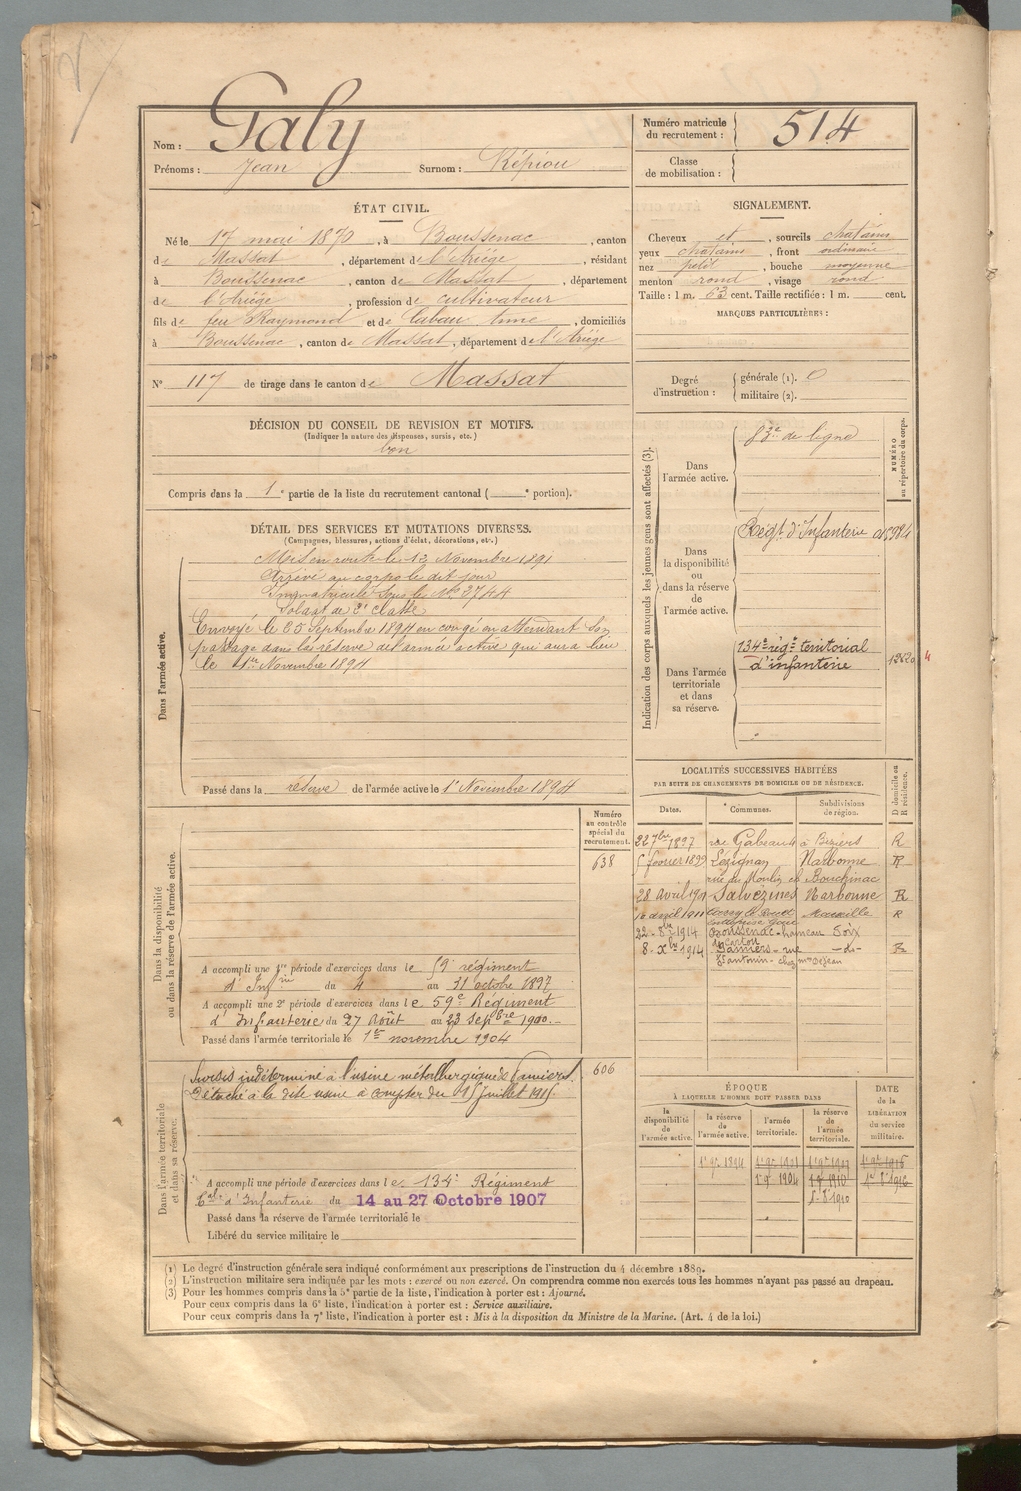 Nom : Galy
Prénoms : Jean Surnom : Répiou
Numéro matricule du recrutement : 514
Classe de mobilisation :
ÉTAT CIVIL.
Né le 17 mai 1870, à Boussenac, canton
de Massat, département de l'Ariège, résidant
à Boussenac, canton de Massat, département
de l'Ariège, profession de cultivateur
fils de feu Raymond et de Cabau Anne, domiciliés
à Boussenac, canton de Massat, département de l'Ariège
N° 117 de tirage dans le canton de Massat
SIGNALEMENT.
Cheveux et, sourcils chatains
yeux chatains, front ordinaire
nez petit, bouche moyenne
menton rond, visage rond
Taille : 1 m. 63 cent. Taille rectifiée : 1 m. cent.
MARQUES PARTICULIÈRES :
Degré d'instruction : générale (1). 0
militaire (2).
DÉCISION DU CONSEIL DE REVISION ET MOTIFS.
(Indiquer la nature des dispenses, sursis, etc.)
bon
Compris dans la 1e partie de la liste du recrutement cantonal ( e portion).
DÉTAIL DES SERVICES ET MUTATIONS DIVERSES.
(Campagnes, blessures, actions d'éclat, décorations, etc.)
Dans l'armée active.
Mis en route le 12 Novembre 1891
Arrivé au corps le dit jour
Immatriculé sous le No 2744
Soldat de 2e classe
Envoyé le 25 Septembre 1894 en congé en attendant son
passage dans la réserve de l'armée active qui aura lieu
le 1er Novembre 1894
Passé dans la réserve de l'armée active le 1er Novembre 1894
Indication des corps auxquels les jeunes gens sont affectés (3).
NUMÉRO au répertoire du corps.
Dans l'armée active.
83e de ligne
Dans la disponibilité ou dans la réserve de l'armée active.
Régt. d'Infanterie
Dans l'armée territoriale et dans sa réserve.
134e régt territorial
d'infanterie
Dans la disponibilité ou dans la réserve de l'armée active.
Numéro au contrôle spécial du recrutement.
638
A accompli une 1re période d'exercices dans le 59e régiment
d'Infrie du 4 au 31 octobre 1897
A accompli une 2e période d'exercices dans le 59e Régiment
d'Infanterie du 27 Août au 23 Septbre 1900
Passé dans l'armée territoriale le 1er novembre 1904
LOCALITÉS SUCCESSIVES HABITÉES
PAR SUITE DE CHANGEMENTS DE DOMICILE OU DE RÉSIDENCE.
Dates. Communes. Subdivisions de région. D domicile ou R résidence.
22 7bre 1897 rue Gabeaut à Béziers R
5 février 1899 Lézignan Narbonne R
rue du Moulin
28 avril 1901 Salvezines Narbonne R
16 avril 1911 Marseille R
22-8bre 1914 Boussenac-hameau Foix
8-Xbre-1914 Pamiers-rue -d- R
St antonin-chez mme Dejean
Dans l'armée territoriale et dans sa réserve.
606
Sursis indéterminé à l'usine métallurgique de Pamiers.
Détaché à la dite usine à compter du 15 Juillet 1915.
A accompli une période d'exercices dans le 134e Régiment
d'Infanterie du 14 au 27 Octobre 1907
Passé dans la réserve de l'armée territoriale le
Libéré du service militaire le
ÉPOQUE
À LAQUELLE L'HOMME DOIT PASSER DANS
la disponibilité de l'armée active. la réserve de l'armée active. l'armée territoriale. la réserve de l'armée territoriale. DATE de la LIBÉRATION du service militaire.
1er 9bre 1894
1er 9bre 1904
(1) Le degré d'instruction générale sera indiqué conformément aux prescriptions de l'instruction du 4 décembre 1889.
(2) L'instruction militaire sera indiquée par les mots : exercé ou non exercé. On comprendra comme non exercés tous les hommes n'ayant pas passé au drapeau.
(3) Pour les hommes compris dans la 5e partie de la liste, l'indication à porter est : Ajourné.
Pour ceux compris dans la 6e liste, l'indication à porter est : Service auxiliaire.
Pour ceux compris dans la 7e liste, l'indication à porter est : Mis à la disposition du Ministre de la Marine. (Art. 4 de la loi.)